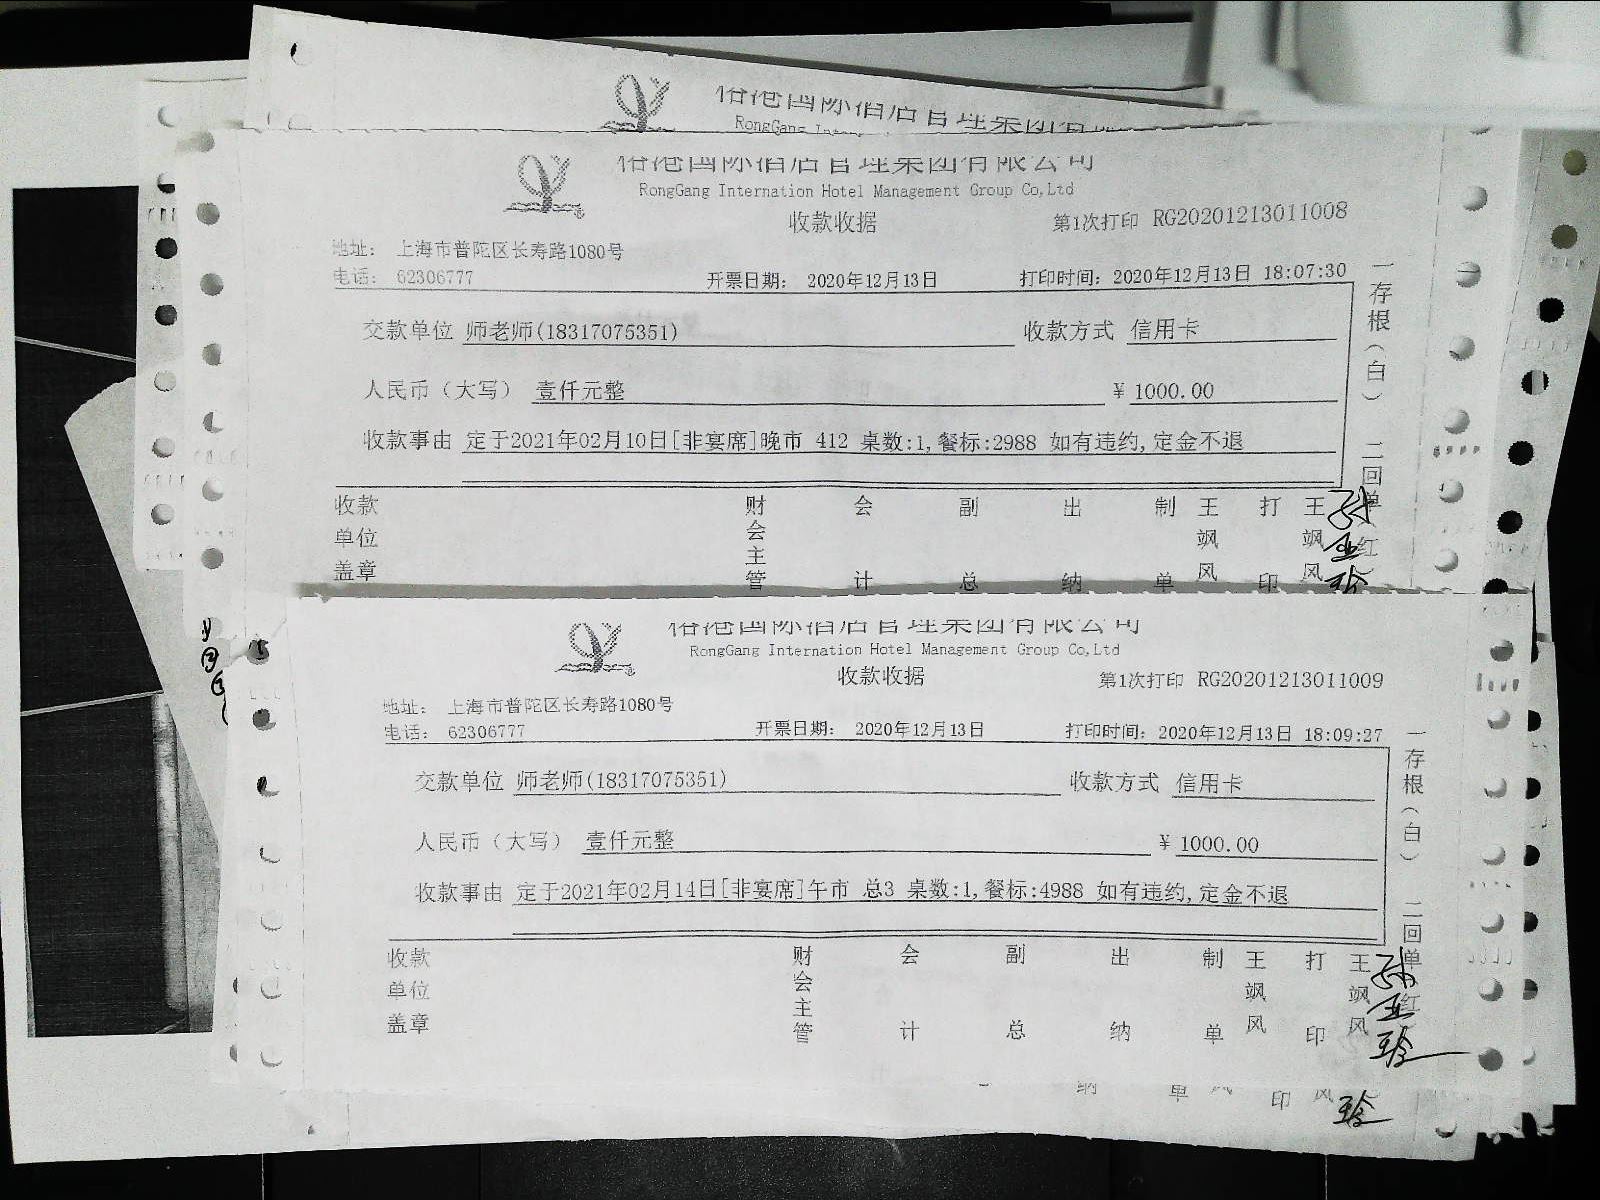 RongGang Inte
国际酒店管理集团有限公司
RongGang Internation Hotel Management Group Co,Ltd
收款收据
第1次打印 RG20201213011008
地址: 上海市普陀区长寿路1080号
电话: 62306777 开票日期: 2020年12月13日 打印时间: 2020年12月13日 18:07:30
交款单位 师老师(18317075351) 收款方式 信用卡
人民币(大写) 壹仟元整 ¥ 1000.00
收款事由 定于2021年02月10日[非宴席]晚市 412 桌数:1,餐标:2988 如有违约,定金不退
一存根(白) 二回单(红
收款单位盖章 财会主管 会计 副总 出纳 制单 王飒风 打印 王飒风
国际酒店管理集团有限公司
RongGang Internation Hotel Management Group Co,Ltd
收款收据
第1次打印 RG20201213011009
地址: 上海市普陀区长寿路1080号
电话: 62306777 开票日期: 2020年12月13日 打印时间: 2020年12月13日 18:09:27
交款单位 师老师(18317075351) 收款方式 信用卡
人民币(大写) 壹仟元整 ¥ 1000.00
收款事由 定于2021年02月14日[非宴席]午市 总3 桌数:1,餐标:4988 如有违约,定金不退
一存根(白) 二回单(红
收款单位盖章 财会主管 会计 副总 出纳 制单 王飒风 打印 王飒风
纳 单 印 风